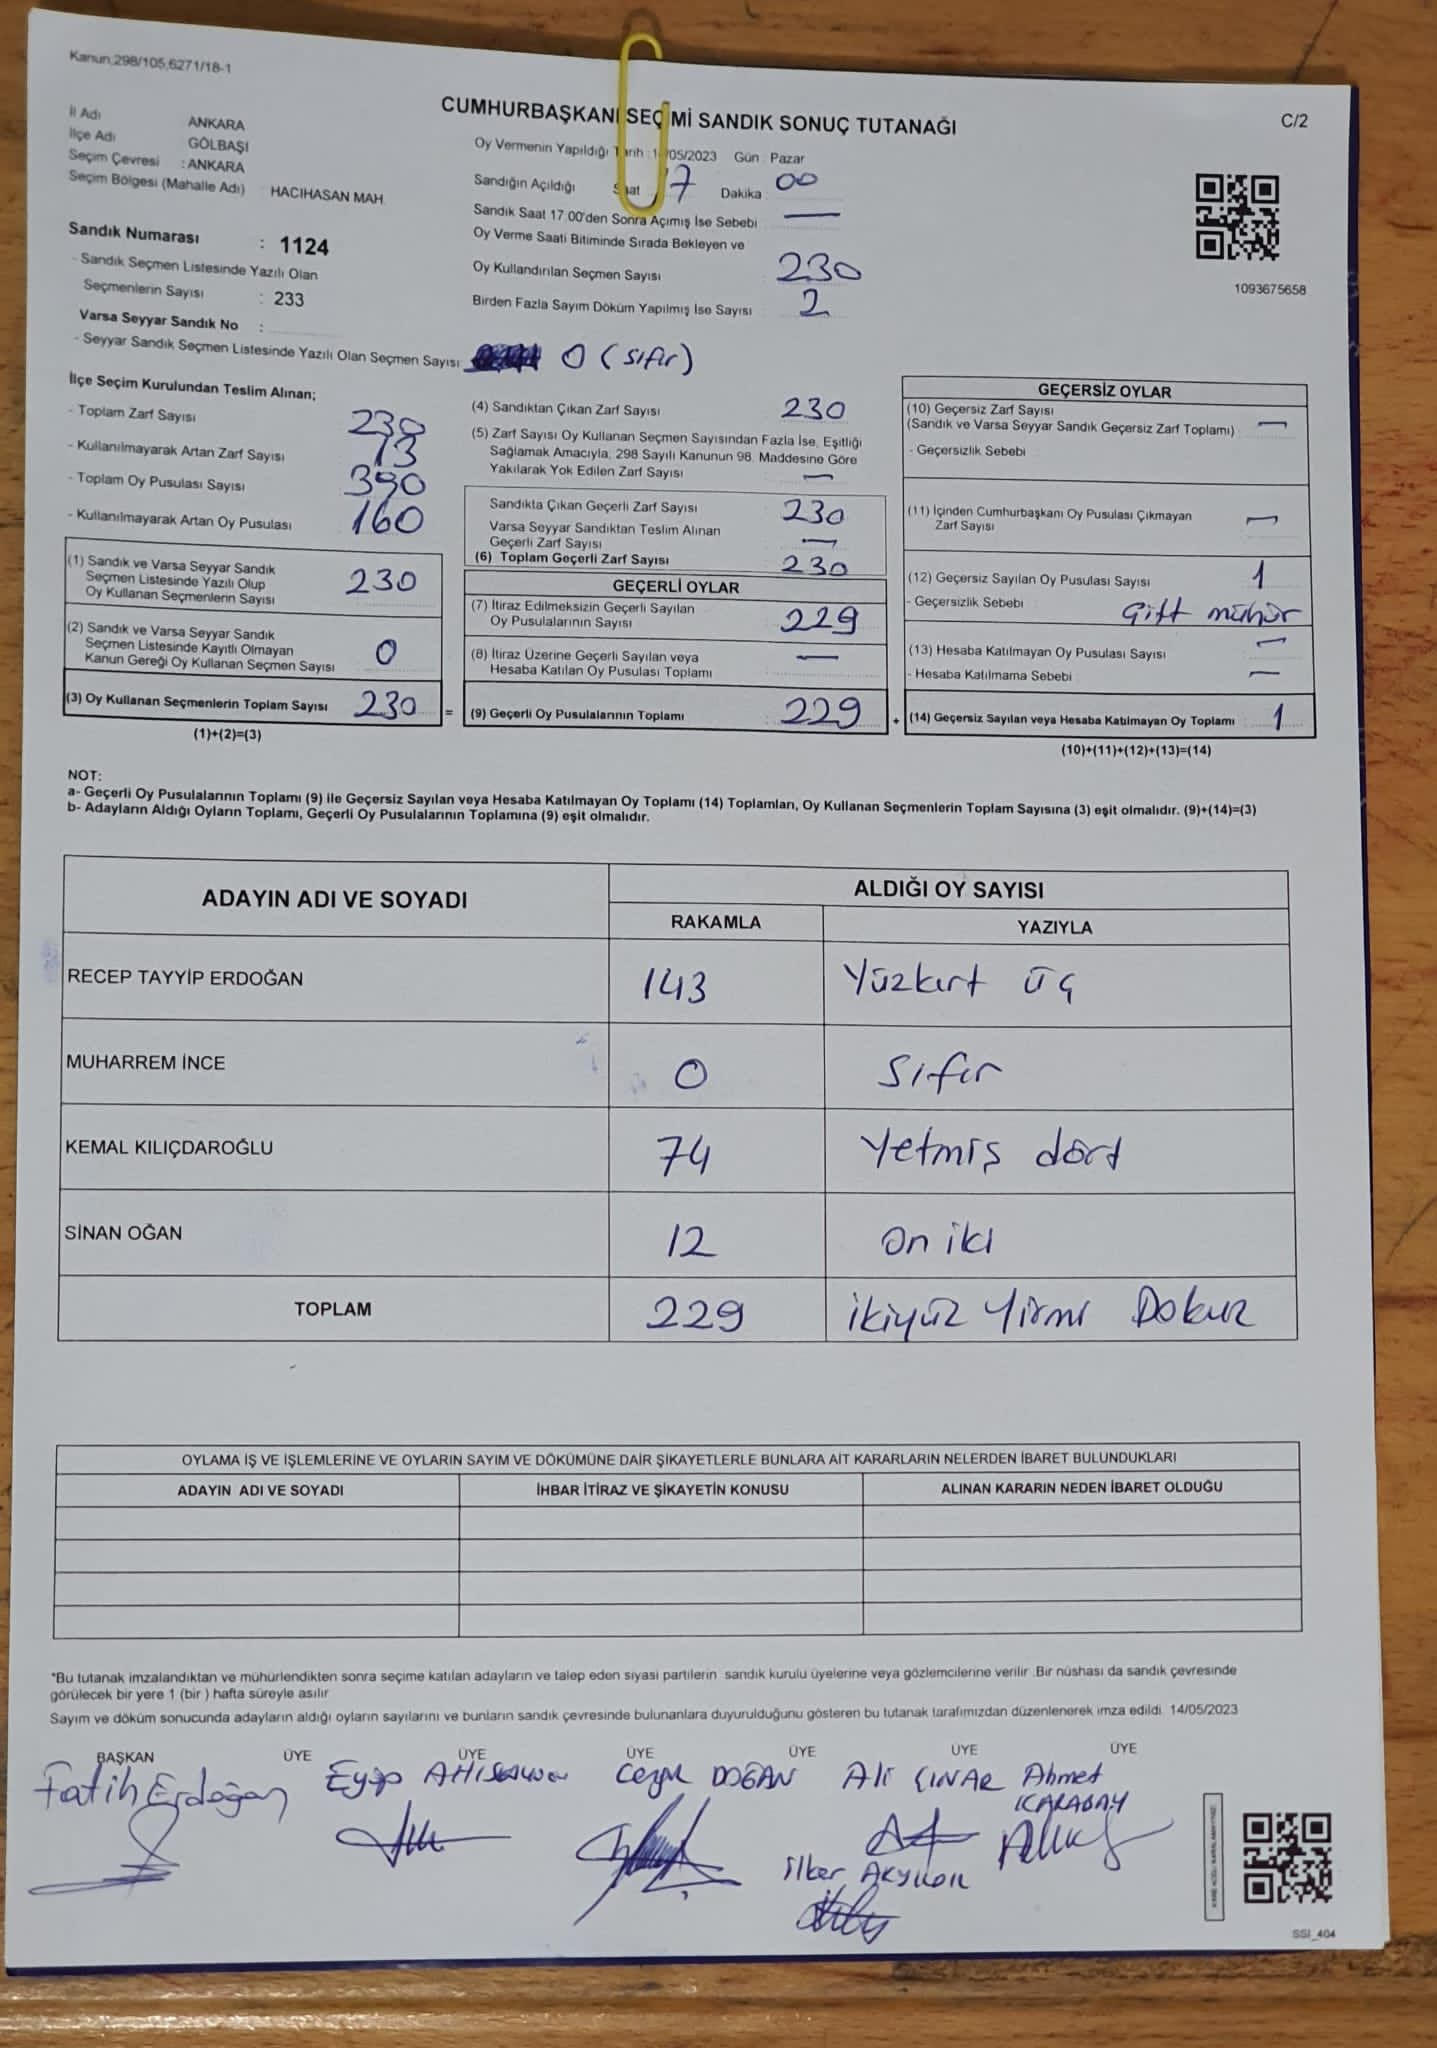 Kanun;298/105,6271/18-1
CUMHURBAŞKANI SEÇİMİ SANDIK SONUÇ TUTANAĞI
C/2
İl Adı ANKARA
İlçe Adı GÖLBAŞI
Seçim Çevresi : ANKARA
Seçim Bölgesi (Mahalle Adı) : HACIHASAN MAH.
Sandık Numarası : 1124
- Sandık Seçmen Listesinde Yazılı Olan
Seçmenlerin Sayısı : 233
Varsa Seyyar Sandık No :
- Seyyar Sandık Seçmen Listesinde Yazılı Olan Seçmen Sayısı 0 (sıfır)
Oy Vermenin Yapıldığı Tarih : 1 /05/2023 Gün : Pazar
Sandığın Açıldığı Saat 17 Dakika 00
Sandık Saat 17.00'den Sonra Açımış İse Sebebi —
Oy Verme Saati Bitiminde Sırada Bekleyen ve
Oy Kullandırılan Seçmen Sayısı 230
Birden Fazla Sayım Döküm Yapılmış İse Sayısı 2
1093675658
İlçe Seçim Kurulundan Teslim Alınan;
- Toplam Zarf Sayısı 230
- Kullanılmayarak Artan Zarf Sayısı 13
- Toplam Oy Pusulası Sayısı 390
- Kullanılmayarak Artan Oy Pusulası 160
(1) Sandık ve Varsa Seyyar Sandık
Seçmen Listesinde Yazılı Olup
Oy Kullanan Seçmenlerin Sayısı 230
(2) Sandık ve Varsa Seyyar Sandık
Seçmen Listesinde Kayıtlı Olmayan
Kanun Gereği Oy Kullanan Seçmen Sayısı 0
(3) Oy Kullanan Seçmenlerin Toplam Sayısı 230 =
(1)+(2)=(3)
(4) Sandıktan Çıkan Zarf Sayısı 230
(5) Zarf Sayısı Oy Kullanan Seçmen Sayısından Fazla İse, Eşitliği
Sağlamak Amacıyla; 298 Sayılı Kanunun 98. Maddesine Göre
Yakılarak Yok Edilen Zarf Sayısı —
Sandıkta Çıkan Geçerli Zarf Sayısı 230
Varsa Seyyar Sandıktan Teslim Alınan
Geçerli Zarf Sayısı —
(6) Toplam Geçerli Zarf Sayısı 230
GEÇERLİ OYLAR
(7) İtiraz Edilmeksizin Geçerli Sayılan
Oy Pusulalarının Sayısı 229
(8) İtiraz Üzerine Geçerli Sayılan veya
Hesaba Katılan Oy Pusulası Toplamı —
(9) Geçerli Oy Pusulalarının Toplamı 229 +
GEÇERSİZ OYLAR
(10) Geçersiz Zarf Sayısı
(Sandık ve Varsa Seyyar Sandık Geçersiz Zarf Toplamı) —
- Geçersizlik Sebebi
(11) İçinden Cumhurbaşkanı Oy Pusulası Çıkmayan
Zarf Sayısı —
(12) Geçersiz Sayılan Oy Pusulası Sayısı 1
- Geçersizlik Sebebi Çift mühür
(13) Hesaba Katılmayan Oy Pusulası Sayısı —
- Hesaba Katılmama Sebebi —
(14) Geçersiz Sayılan veya Hesaba Katılmayan Oy Toplamı 1
(10)+(11)+(12)+(13)=(14)
NOT:
a- Geçerli Oy Pusulalarının Toplamı (9) ile Geçersiz Sayılan veya Hesaba Katılmayan Oy Toplamı (14) Toplamları, Oy Kullanan Seçmenlerin Toplam Sayısına (3) eşit olmalıdır. (9)+(14)=(3)
b- Adayların Aldığı Oyların Toplamı, Geçerli Oy Pusulalarının Toplamına (9) eşit olmalıdır.
ADAYIN ADI VE SOYADI ALDIĞI OY SAYISI
RAKAMLA YAZIYLA
RECEP TAYYİP ERDOĞAN 143 Yüzkırt üç
MUHARREM İNCE 0 sıfır
KEMAL KILIÇDAROĞLU 74 Yetmiş dört
SİNAN OĞAN 12 on iki
TOPLAM 229 ikiyüz Yirmi Dokuz
OYLAMA İŞ VE İŞLEMLERİNE VE OYLARIN SAYIM VE DÖKÜMÜNE DAİR ŞİKAYETLERLE BUNLARA AİT KARARLARIN NELERDEN İBARET BULUNDUKLARI
ADAYIN ADI VE SOYADI İHBAR İTİRAZ VE ŞİKAYETİN KONUSU ALINAN KARARIN NEDEN İBARET OLDUĞU
*Bu tutanak imzalandıktan ve mühürlendikten sonra seçime katılan adayların ve talep eden siyasi partilerin sandık kurulu üyelerine veya gözlemcilerine verilir. Bir nüshası da sandık çevresinde
görülecek bir yere 1 (bir ) hafta süreyle asılır
Sayım ve döküm sonucunda adayların aldığı oyların sayılarını ve bunların sandık çevresinde bulunanlara duyurulduğunu gösteren bu tutanak tarafımızdan düzenlenerek imza edildi. 14/05/2023
BAŞKAN ÜYE ÜYE ÜYE ÜYE ÜYE ÜYE
Fatih Erdoğan Eyyp DOĞAN Ali ÇINAR Ahmet
KARABAY
ilker
SSI_404